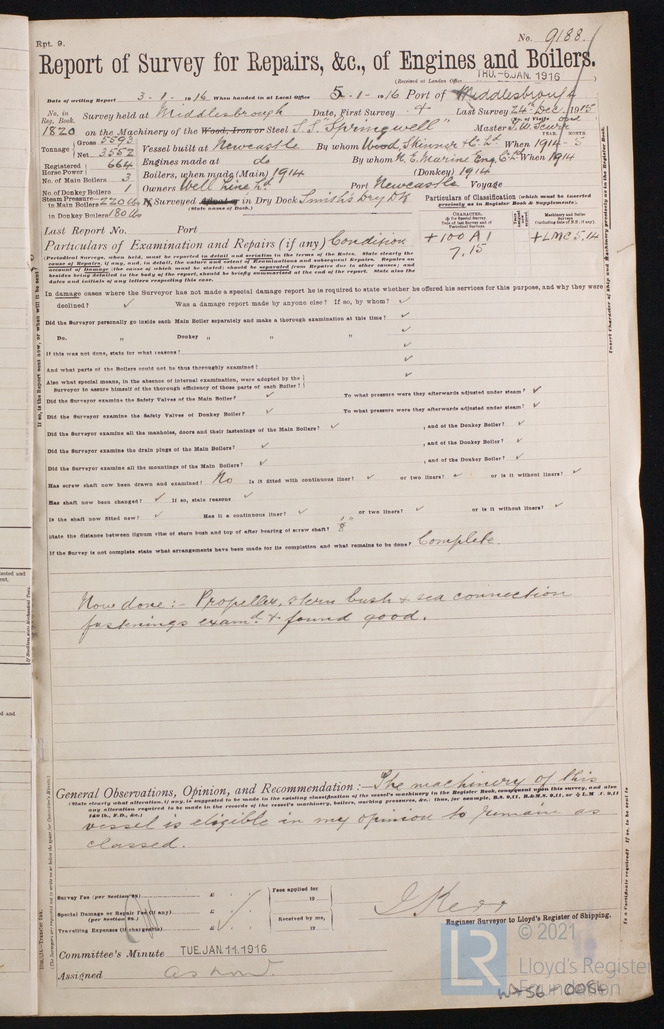 Rpt. 9.
No. 9188.
Report of Survey for Repairs, &c., of Engines and Boilers.
(Received at London Office THU. -6 JAN. 1916 )
Date of writing Report 3-1-1916 When handed in at Local Office 5-1-1916 Port of Middlesbrough
No. in Reg. Book. Survey held at Middlesbrough Date, First Survey Last Survey 24th Dec. 1915
(No. of Visits One)
1820 on the Machinery of the Wood, Iron or Steel S.S. "Springwell" Master
Tonnage Gross 5593 Net 3552 Vessel built at Newcastle By whom Wood, Skinner & Co. Ld. When 1914-5
YEAR. MONTH
Registered Horse Power 664 Engines made at do By whom N.E. Marine Eng. Co. Ld. When 1914
No. of Main Boilers 3 Boilers, when made (Main) 1914 (Donkey) 1914
No. of Donkey Boilers 1 Owners Well Line Ld. Port Newcastle Voyage
Steam Pressure in Main Boilers 220 lbs If Surveyed Afloat or in Dry Dock Smith's Dry Dk
(State name of Dock.)
in Donkey Boilers 180 lbs
Particulars of Classification (which must be inserted precisely as in Register Book & Supplements).
CHARACTER.
Machinery and Boiler Surveys
+100 A1 +LMC 5,14
7,15
Last Report No. Port
Particulars of Examination and Repairs (if any) Condition
(Periodical Surveys, when held, must be reported in detail and seriatim in the terms of the Rules. State clearly the cause of Repairs, if any, and, in detail, the nature and extent of Examinations and subsequent Repairs. Repairs on account of Damage (the cause of which must be stated) should be separated from Repairs due to other causes; and besides being detailed in the body of the report, should be briefly summarised at the end of the report. State also the dates and initials of any letters respecting this case.
In damage cases where the Surveyor has not made a special damage report he is required to state whether he offered his services for this purpose, and why they were
declined? ✓ Was a damage report made by anyone else? If so, by whom? ✓
Did the Surveyor personally go inside each Main Boiler separately and make a thorough examination at this time? ✓
Do. " Donkey " " " ✓
If this was not done, state for what reasons? ✓
And what parts of the Boilers could not be thus thoroughly examined? ✓
Also what special means, in the absence of internal examination, were adopted by the Surveyor to assure himself of the thorough efficiency of those parts of each Boiler? ✓
Did the Surveyor examine the Safety Valves of the Main Boiler? ✓ To what pressure were they afterwards adjusted under steam? ✓
Did the Surveyor examine the Safety Valves of Donkey Boiler? ✓ To what pressure were they afterwards adjusted under steam? ✓
Did the Surveyor examine all the manholes, doors and their fastenings of the Main Boilers? ✓ , and of the Donkey Boiler? ✓
Did the Surveyor examine the drain plugs of the Main Boilers? ✓ , and of the Donkey Boiler? ✓
Did the Surveyor examine all the mountings of the Main Boilers? ✓ , and of the Donkey Boiler? ✓
Has screw shaft now been drawn and examined? No Is it fitted with continuous liner? ✓ or two liners? ✓ or is it without liners? ✓
Has shaft now been changed? ✓ If so, state reasons ✓
Is the shaft now fitted new? ✓ Has it a continuous liner? ✓ or two liners? ✓ or is it without liners? ✓
State the distance between lignum vitæ of stern bush and top of after bearing of screw shaft?
If the Survey is not complete state what arrangements have been made for its completion and what remains to be done? Complete
Now done :- Propeller, stern bush & sea connection
fastenings examd. & found good.
General Observations, Opinion, and Recommendation :— The machinery of this
(State clearly what alteration, if any, is suggested to be made in the existing classification of the vessel's machinery in the Register Book, consequent upon this survey, and also any alteration required to be made in the records of the vessel's machinery, boilers, working pressures, &c.: thus, for example, B.S. 9,11, B.&M.S. 9,11, or L.M.C. 9,11 140 lb., F.D., &c.)
vessel is eligible in my opinion to remain as
classed.
Survey Fee (per Section 29) £
Fees applied for 19
Special Damage or Repair Fee (if any) (per Section 29.) £
Travelling Expenses (if chargeable) £
Received by me, 19
Engineer Surveyor to Lloyd's Register of Shipping.
Committee's Minute TUE. JAN. 11. 1916
Assigned as now
LR
© 2021
Lloyd's Register
Foundation
W756-0084